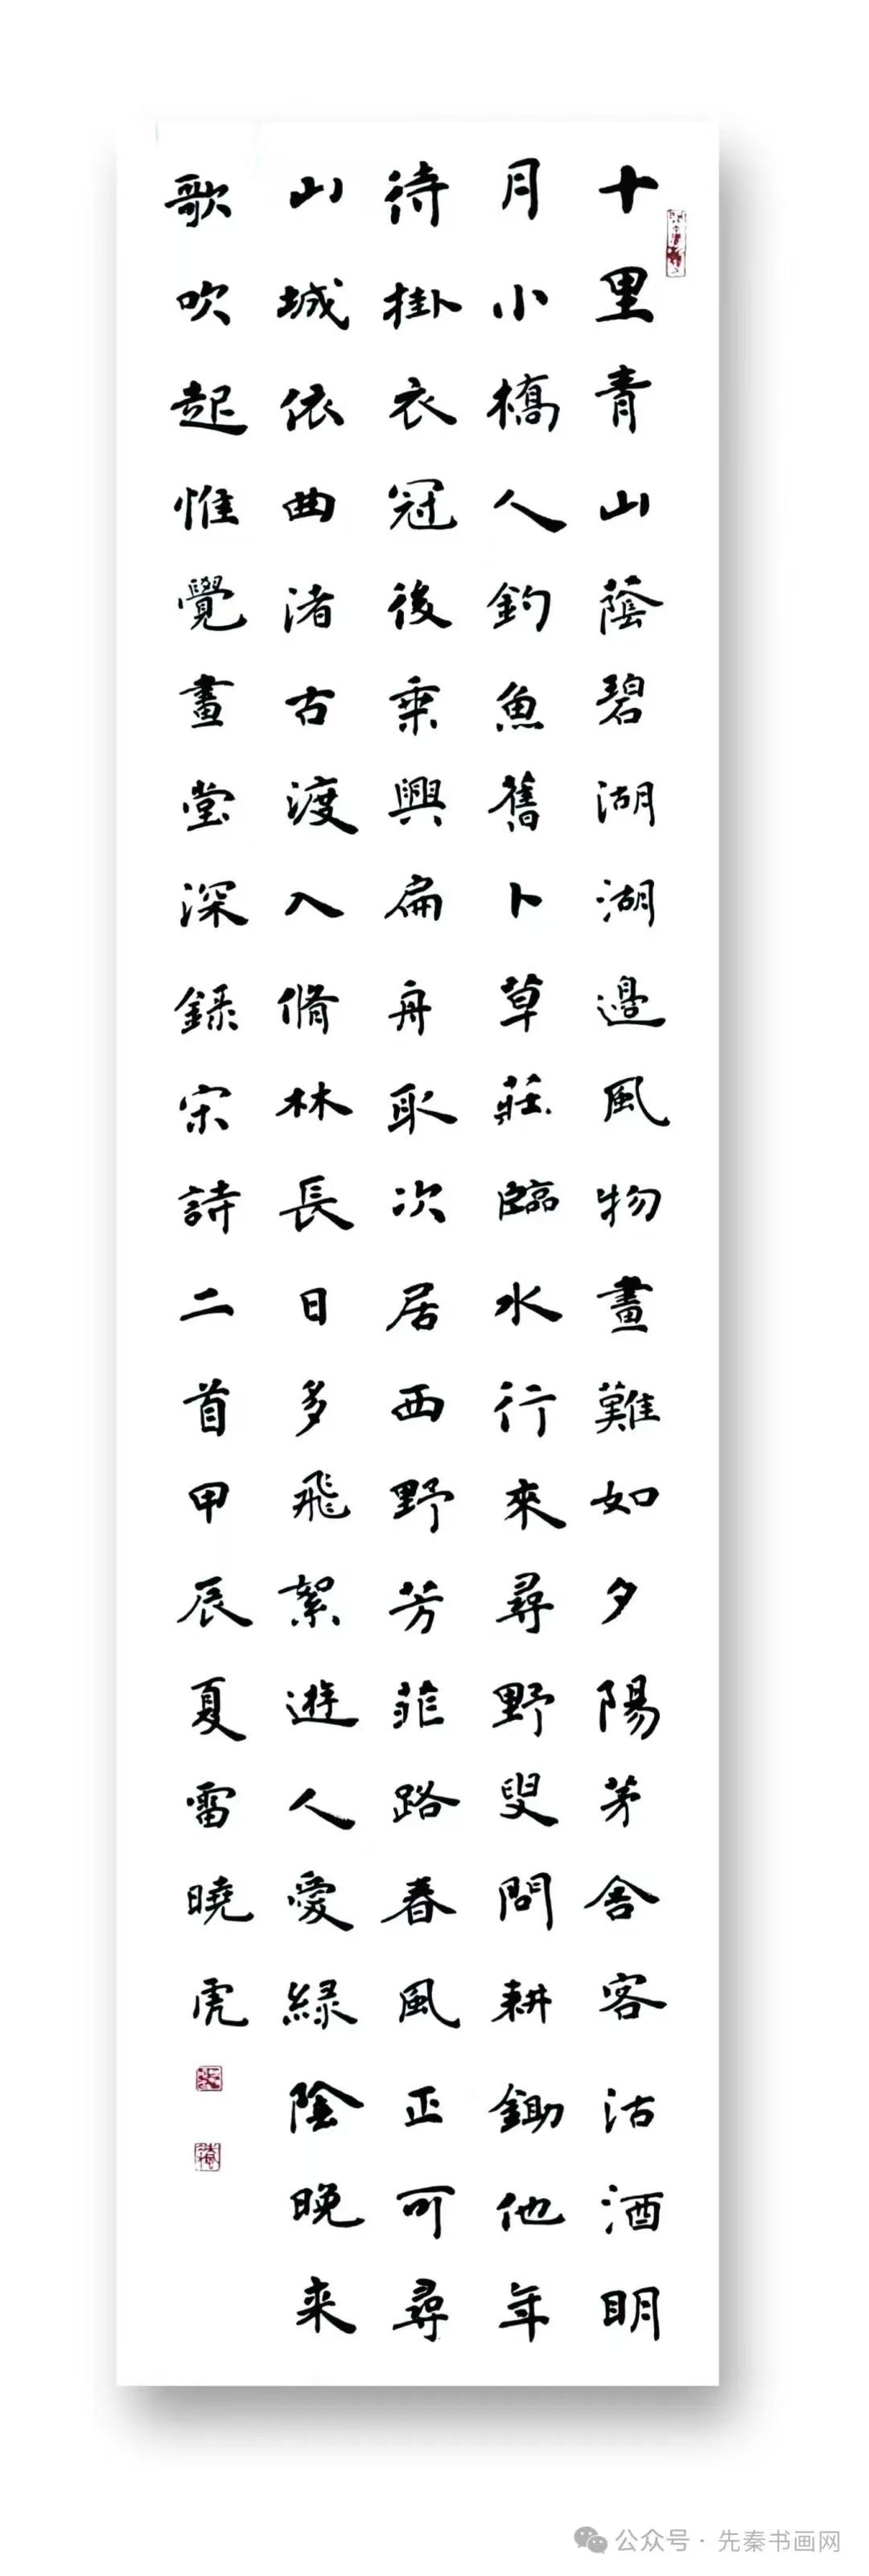 十里青山蔭碧湖湖邊風物畫難如夕陽茅舍客沽酒明
月小橋人釣魚舊卜草莊臨水行來尋野叟問耕鋤他年
待掛衣冠後乘興扁舟取次居西野芳菲路春風正可尋
山城依曲渚古渡入脩林長日多飛絮遊人愛綠陰晚来
歌吹起惟覺畫堂深錄宋詩二首甲辰夏雷曉虎
公众号·先秦书画网